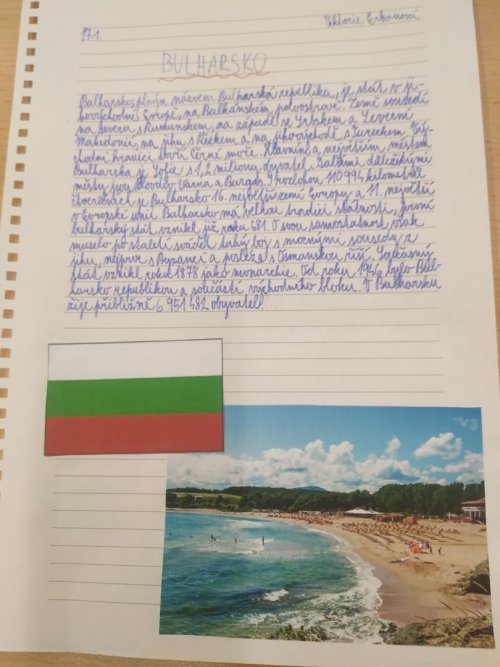 17.1.
BULHARSKO
Bulharsko, plným názvem Bulharská republika, je stát v ji-
hovýchodní Evropě, na Balkánském poloostrově. Země sousedí
na severu s Rumunskem, na západě se Srbskem a Severní
Makedonií, na jihu s Řeckem a na jihovýchodě s Tureckem. Vý-
chodní hranici tvoří Černé moře. Hlavním a největším městem
Bulharska je Sofie s 1,2 miliony obyvatel. Dalšími důležitými
městy jsou Plovdiv, Varna a Burgas. S rozlohou 110 994 kilometrů
čtverečních je Bulharsko 16. největší zemí Evropy a 11. největší
v Evropské unii. Bulharsko má velkou tradici státnosti, první
bulharský stát vznikl již roku 681. O svou samostatnost však
muselo po staletí svádět tuhý boj s mocnými sousedy z
jihu, nejprve s Byzancí a posléze s Osmanskou říší. Současný
stát vznikl roku 1878 jako monarchie. Od roku 1946 bylo Bul-
harsko republikou a součástí východního bloku. V Bulharsku
žije přibližně 6 951 482 obyvatel.